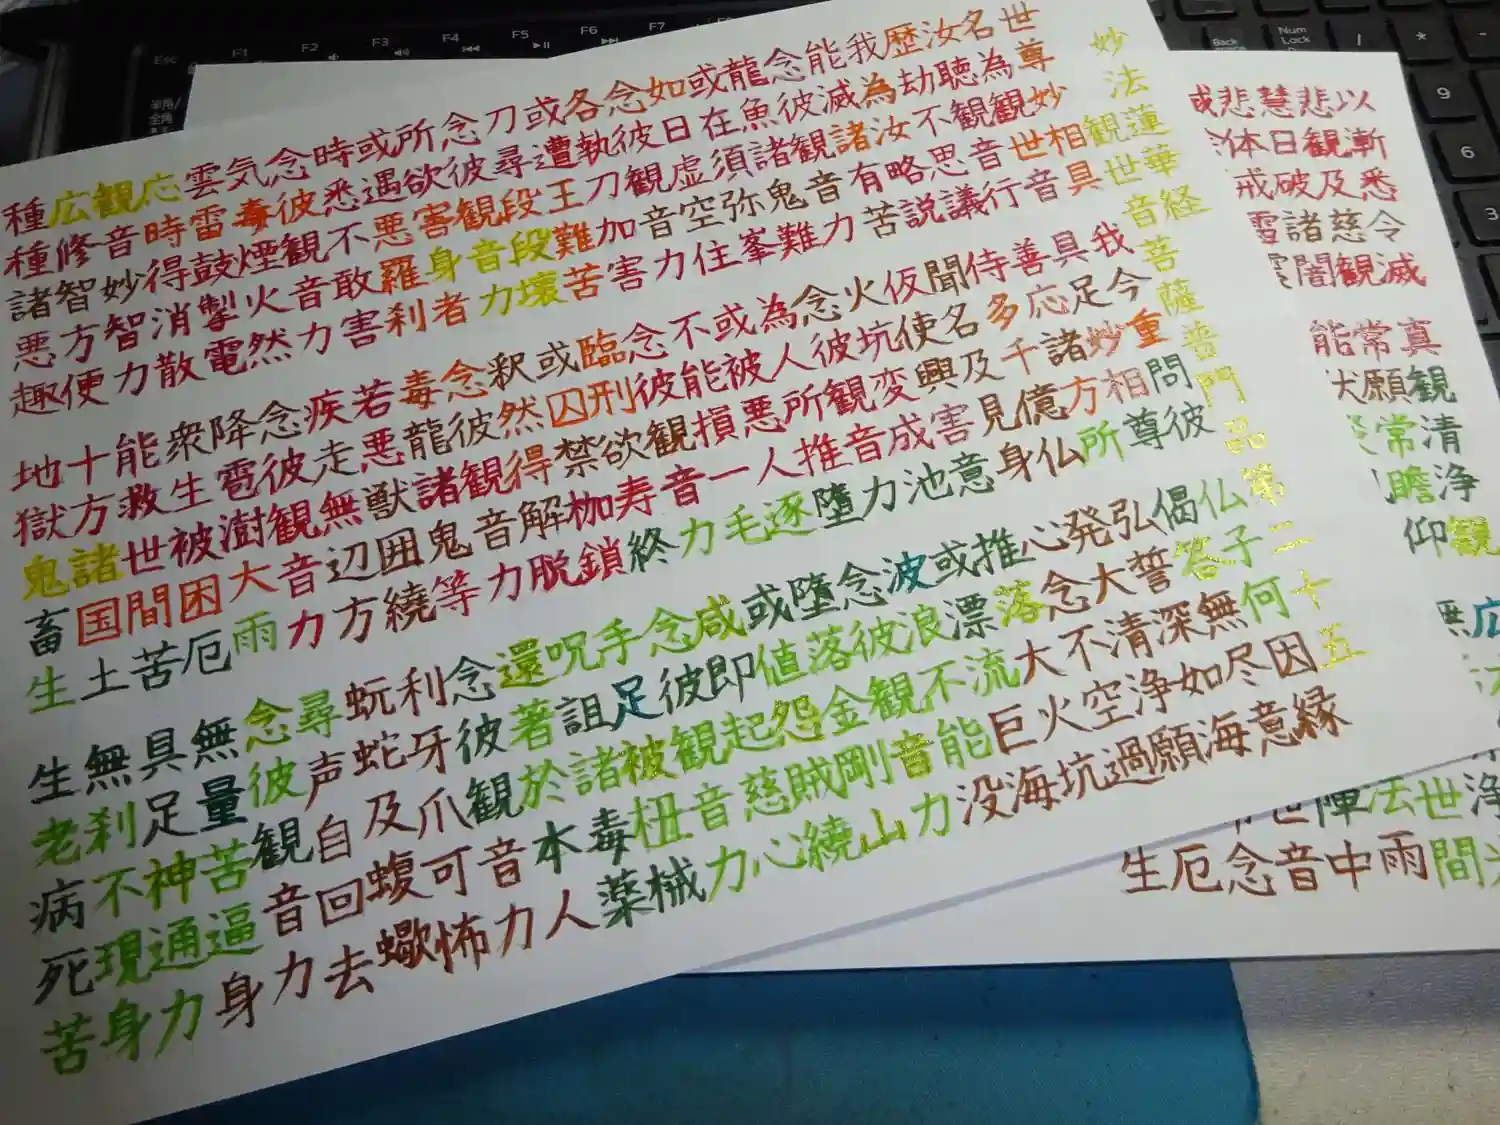 妙法蓮華経観世音菩薩普門品第二十五
世尊妙相具 我今重問彼 仏子何因縁
名為観世音 具足妙相尊 偈答無尽意
汝聴観音行 善応諸方所 弘誓深如海
歴劫不思議 侍多千億仏 発大清浄願
我為汝略説 聞名及見身 心念不空過
能滅諸有苦 仮使興害意 推落大火坑
念彼観音力 火坑変成池 或漂流巨海
龍魚諸鬼難 念彼観音力 波浪不能没
或在須弥峯 為人所推墮 念彼観音力
如日虚空住 或被悪人逐 墮落金剛山
念彼観音力 不能損一毛 或値怨賊繞
各執刀加害 念彼観音力 咸即起慈心
或遭王難苦 臨刑欲寿終 念彼観音力
刀尋段段壊 或囚禁枷鎖 手足被杻械
念彼観音力 釈然得解脱 呪詛諸毒薬
所欲害身者 念彼観音力 還著於本人
或遇悪羅刹 毒龍諸鬼等 念彼観音力
時悉不敢害 若悪獣囲繞 利牙爪可怖
念彼観音力 疾走無辺方 蚖蛇及蝮蠍
気毒煙火然 念彼観音力 尋声自回去
雲雷鼓掣電 降雹澍大雨 念彼観音力
応時得消散 衆生被困厄 無量苦逼身
観音妙智力 能救世間苦 具足神通力
広修智方便 十方諸国土 無刹不現身
種種諸悪趣 地獄鬼畜生 生老病死苦
以漸悉令滅 真観清浄観 広
悲観及慈観 常願常瞻仰 無 浄光
慧日破諸闇 能伏 世間
悲体戒雷 法雨
陣中
世音
念
厄
生